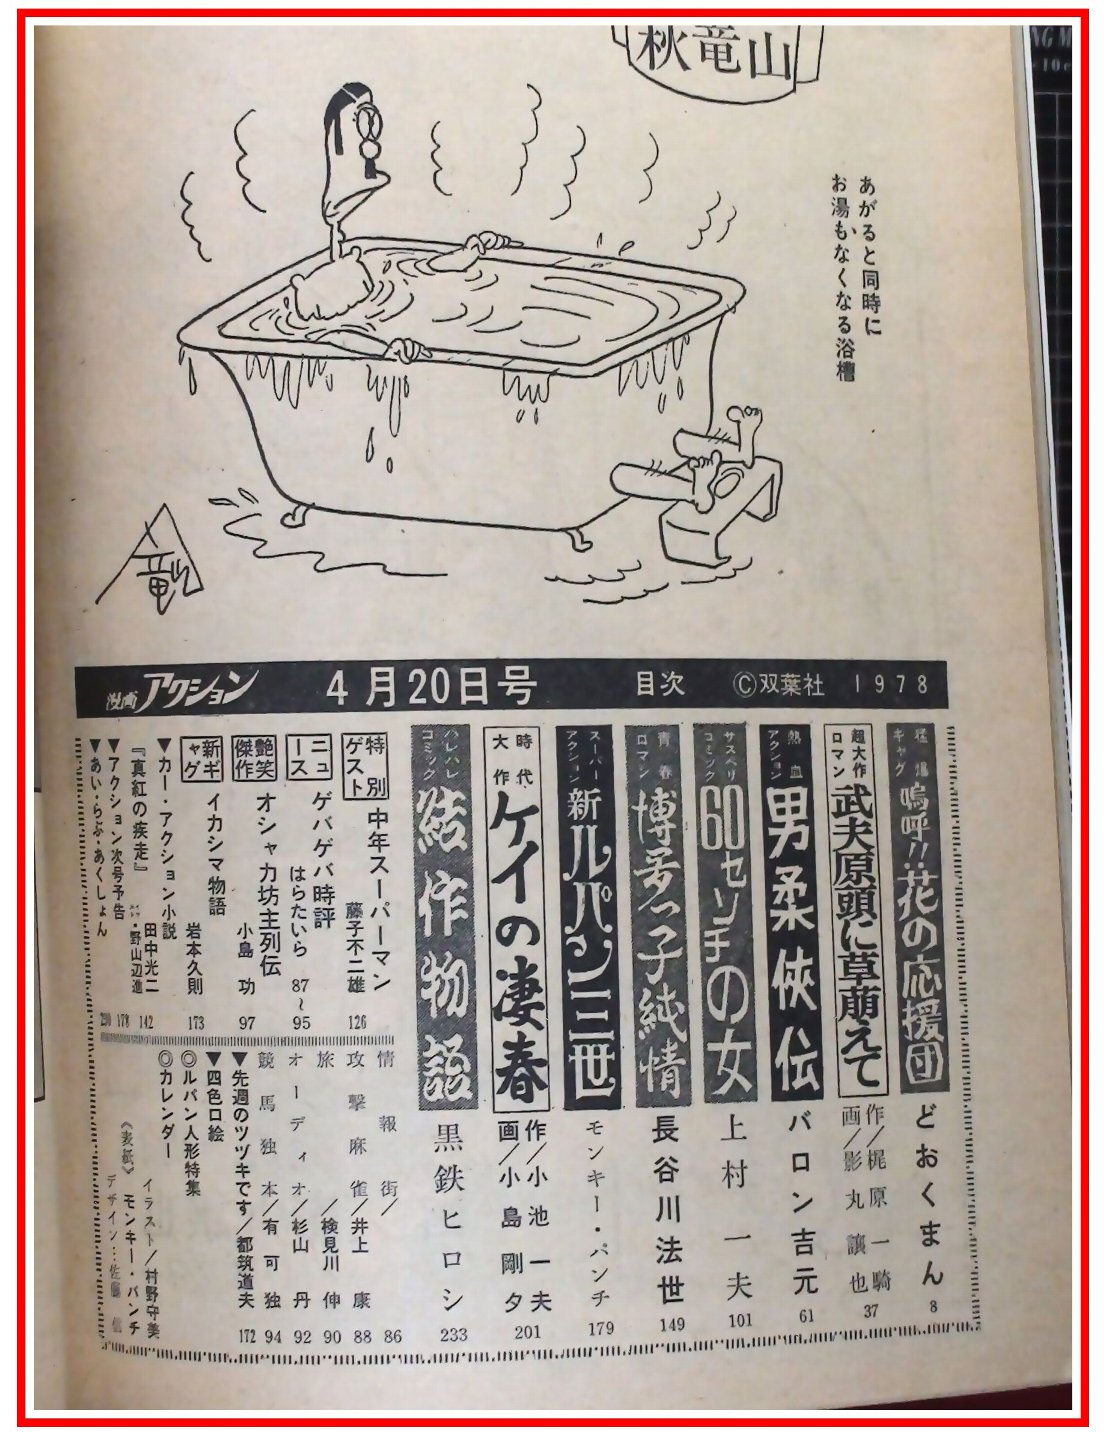 秋竜山
あがると同時に
お湯もなくなる浴槽
竜山
漫画アクション 4月20日号 目次 Ⓒ双葉社 1978
猛爆ギャグ 嗚呼!!花の応援団 どおくまん 8
超大作ロマン 武夫原頭に草萌えて 作/梶原一騎 画/影丸譲也 37
熱血アクション 男柔侠伝 バロン吉元 61
サスペリコミック 60センチの女 上村一夫 101
青春ロマン 博多っ子純情 長谷川法世 149
スーパーアクション 新ルパン三世 モンキー・パンチ 179
時代大作 ケイの凄春 作/小池一夫 画/小島剛夕 201
ハレハレコミック 結作物語 黒鉄ヒロシ 233
特別ゲスト 中年スーパーマン 藤子不二雄 126
ニュース ゲバゲバ時評 はらたいら 87~95
艶笑傑作 オシャカ坊主列伝 小島功 97
新ギャグ イカシマ物語 岩本久則 173
▼カー・アクション小説
『真紅の疾走』 田中光二 ・野山辺進 142
▼アクション次号予告 178
▼あい・らぶ・あくしょん 230
情報街/ 86
攻撃麻雀/井上康 88
旅/検見川伸 90
オーディオ/杉山丹 92
競馬独本/有可独 94
▼先週のツヅキです/都筑道夫 172
▼四色口絵
◎ルパン人形特集
◎カレンダー
イラスト/村野守美
《表紙》モンキー・パンチ
デザイン…佐藤